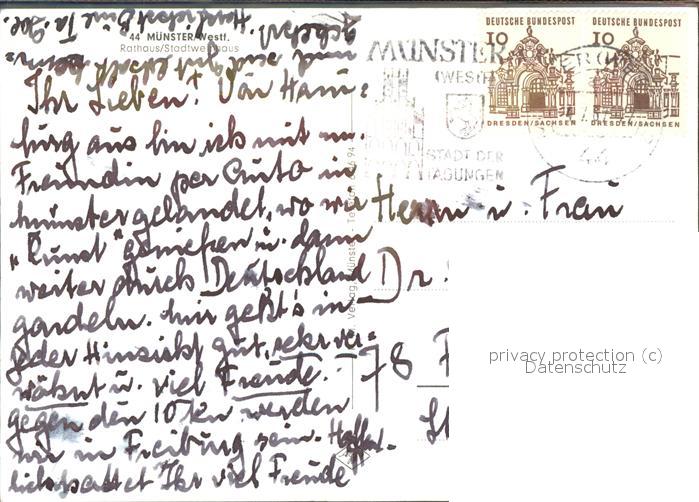 44 MÜNSTER/Westf.
Rathaus/Stadtweinhaus
Ihr Lieben! Von Ham-
burg aus bin ich mit m.
Freundin per Auto in
Münster gelandet, wo wir
"Kunst" genießen u. dann
weiter durch Deutschland
gondeln. Mir geht's in
jeder Hinsicht gut, sehr ver-
wöhnt u. viel Freude. -
gegen den 10ten werden
wir in Freiburg sein. Hoffent-
lich hattet Ihr viel Freude
MÜNSTER
(WESTF)
STADT DER
TAGUNGEN
44
DEUTSCHE BUNDESPOST
10
DRESDEN/SACHSEN
DEUTSCHE BUNDESPOST
10
DRESDEN/SACHSEN
Herrn u. Frau
Dr.
78 F
privacy protection (c)
Datenschutz